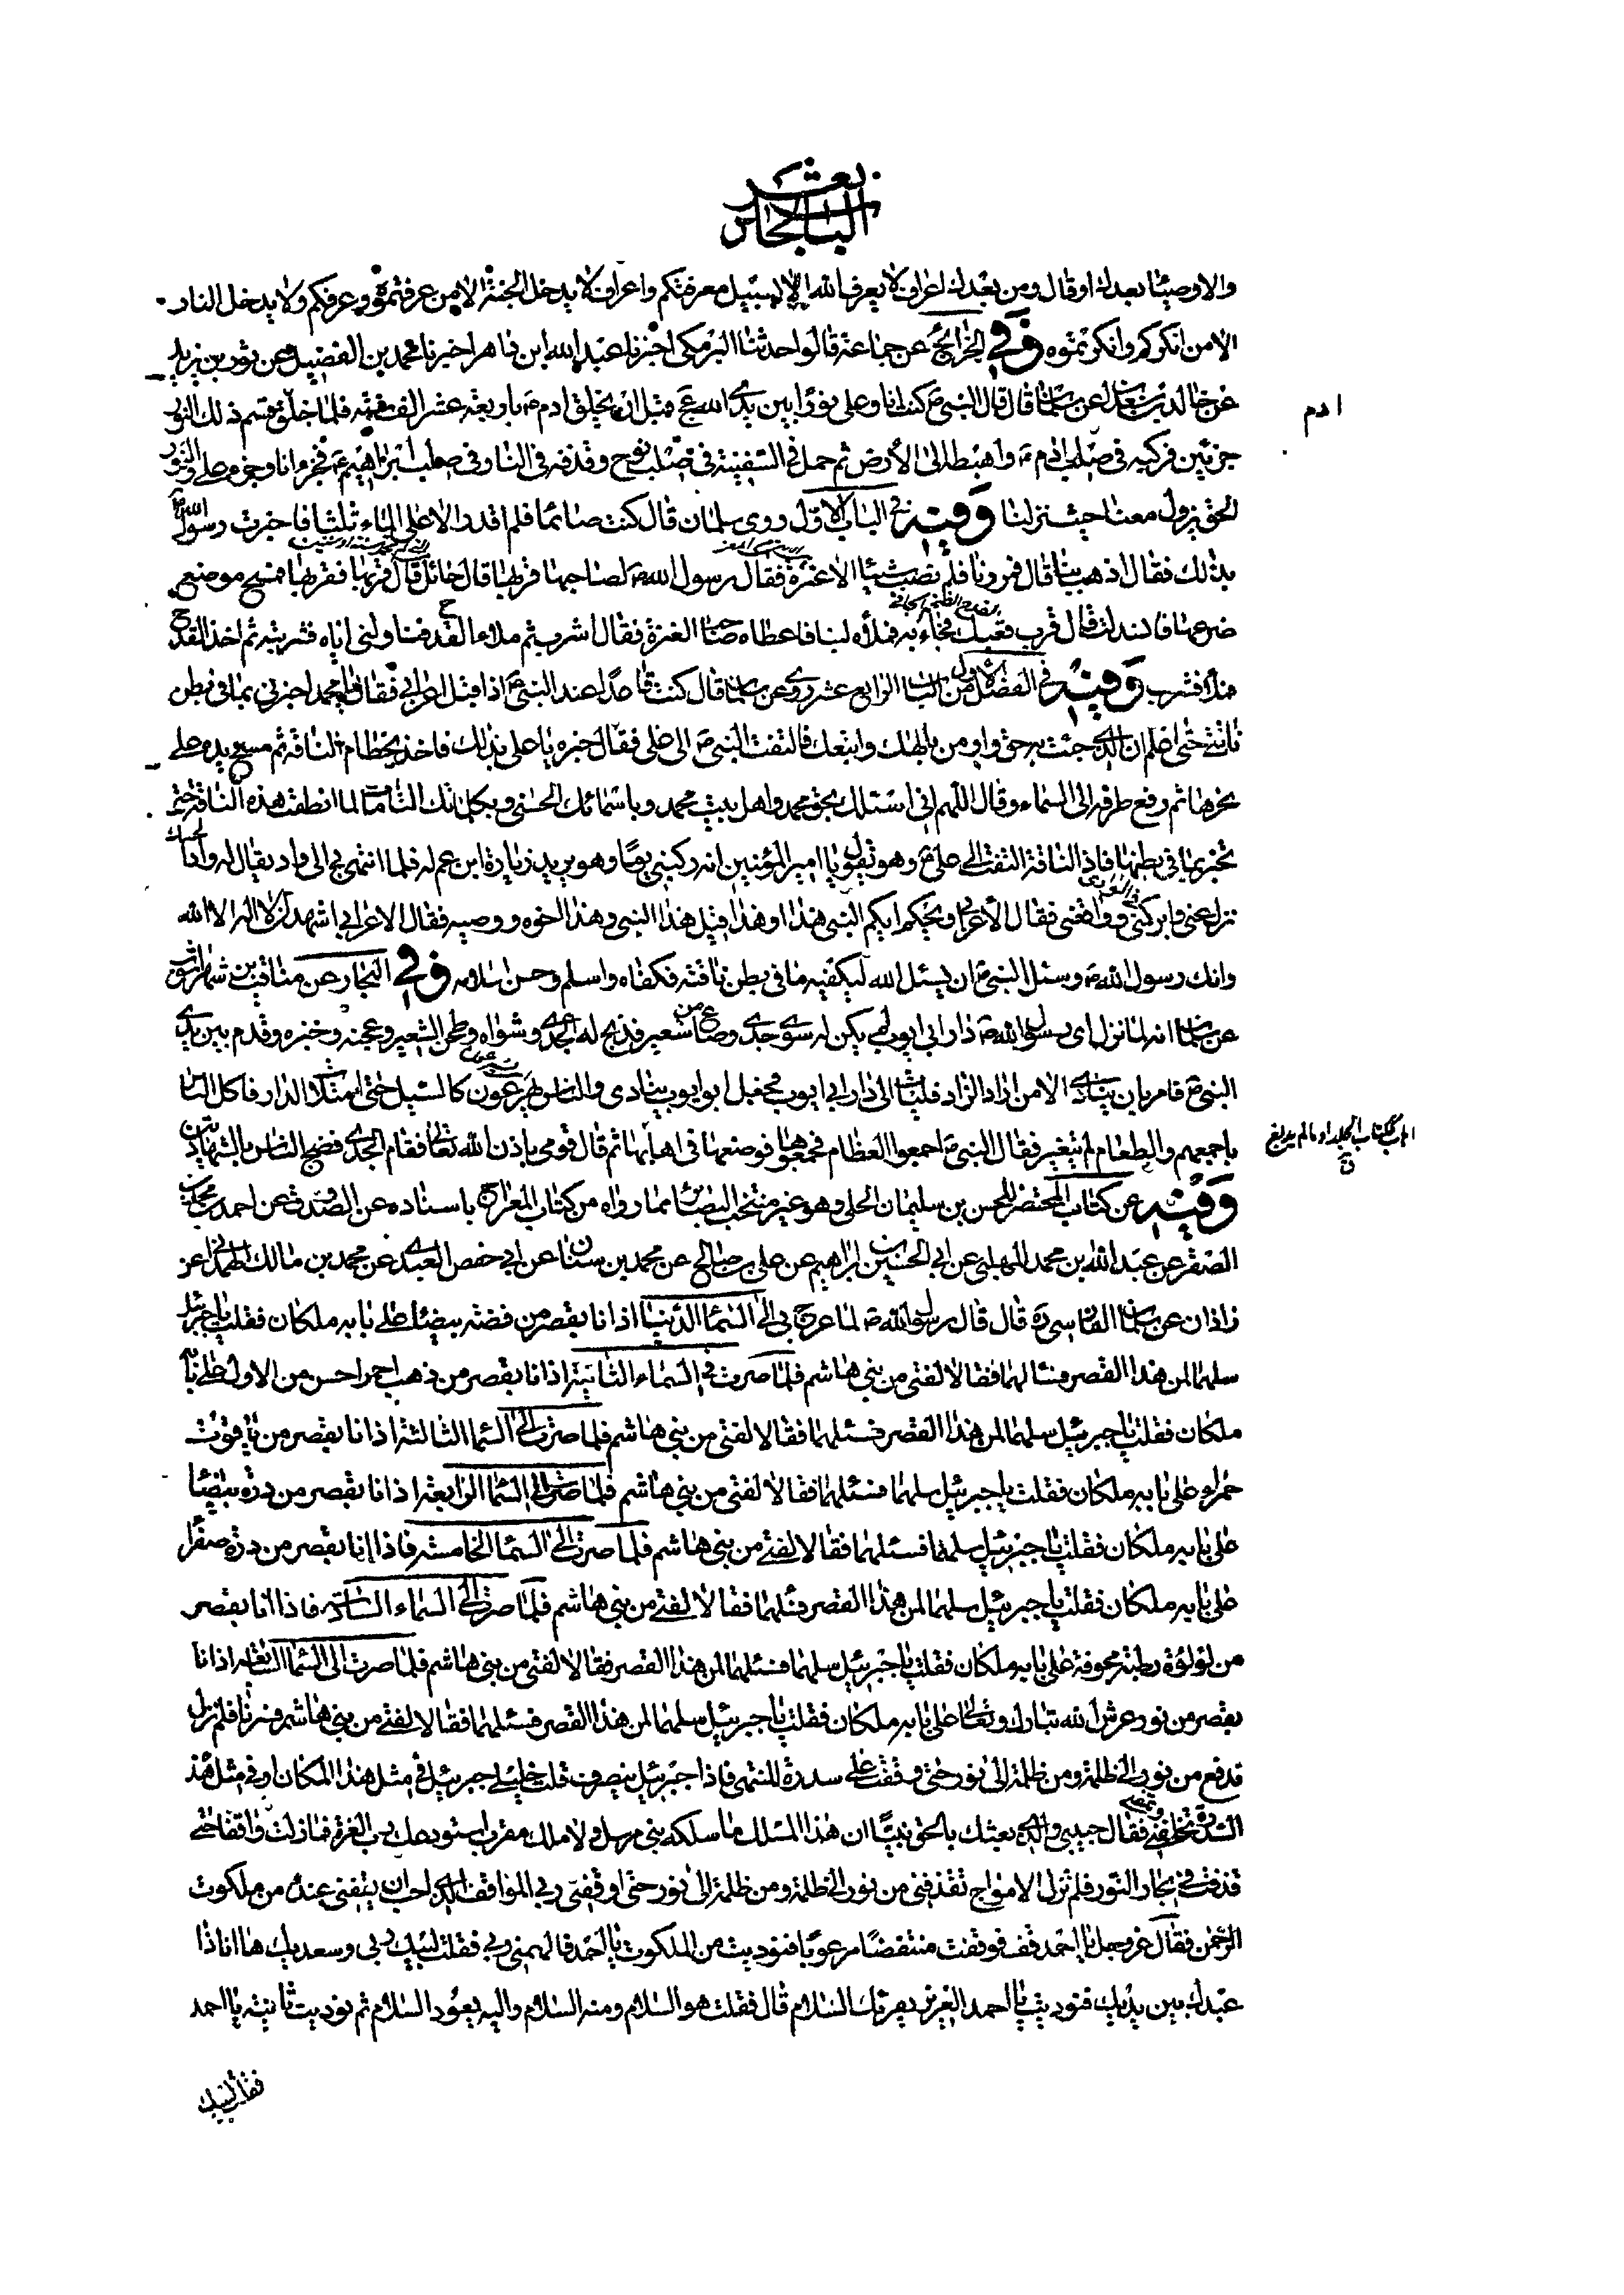 الباب الخامس عشر
والاوصياء بعدك او قال ومن بعدك اعراف لا يعرف الله الا بسبيل معرفتكم واعراف لا يدخل الجنة الا من عرفتموه وعرفكم ولا يدخل النار
الا من انكركم وانكرتموه وفي الخرائج عن جماعة قالوا حدثنا البرمكي اخبرنا عبد الله ابن اخبرنا محمد بن الفضيل عن ثور بن يزيد
عن خالد بن معدان عن سلمان قال قال النبي ص كنت انا وعلي نورا بين يدي الله عج قبل ان يخلق ادم ع باربعة عشر الف فلما خلق قسم ذلك النور
ادم
جزئين فركبه في صلب ادم ع واهبطه الى الأرض ثم حمله في السفينة في صلب نوح وقذفه في النار في صلب ابراهيم ع فجزء انا وجزء علي والنور
الحق يزول معنا حيث نزلنا وفيه في الباب الاول روى سلمان قال كنت صائما فلم اقدر الا على الماء ثلثا فاخبرت رسول الله ص
بذلك فقال اذهب بنا قال فمررنا فلم نصب شيئا الا عنزة فقال رسول الله ص لصاحبها قربها قال حائل قال قربها فقربها فمسح موضع
ضرعها فاسدلت قال قرب قعبك فجاء به فملأه لبنا فاعطاه صاحب العنزة فقال اشرب ثم ملاء القدح فناولني اياه فشربته ثم اخذ القدح
فملأ فشرب وفيه في الفصل الاول من الباب الرابع عشر روي عن سلمان قال كنت قاعدا عند النبي ص اذ اقبل اعرابي فقال يا محمد اخبرني بما في بطن
ناقتي حتى اعلم ان الذي جئت به حق واومن بالهك واتبعك فالتفت النبي ص الى علي فقال اخبره يا علي بذلك فاخذ بخطام الناقة ثم مسح يده على
نحرها ثم رفع طرفه الى السماء وقال اللهم اني اسئلك بحق محمد واهل بيت محمد وباسمائك الحسنى وبكلماتك التامات لما انطقت هذه الناقة حتى
تخبر بما في بطنها فاذا الناقة التفتت الى علي ع وهو تقول يا امير المؤمنين انه ركبني يوما وهو يريد زيارة ابن عم له فلما انتهى بي الى واد يقال له وادي الحسك
نزل عني وابركني وواقعني فقال الأعرابي ويحكم ايكم النبي هذا او هذا قيل هذا النبي وهذا اخوه ووصيه فقال الاعرابي اشهد ان لا اله الا الله
وانك رسول الله ص وسئل النبي ص ان يسئل الله ليكفيه ما في بطن ناقته فكفاه واسلم وحسن اسلامه وفي البحار عن مناقب بن شهراشوب
عن سلمان انه لما نزل اي رسول الله ص دار ابي ايوب لم يكن له سوى جدي وصاع من شعير فذبح له الجدي وشواه وطحن الشعير وعجنه وخبزه وقدم بين يدي
النبي ص فامر بان ينادي الا من اراد الزاد فليات الى دار ابي ايوب فجعل ابو ايوب ينادي والناس يهرعون كالسيل حتى امتلأ الدار فاكل الناس
باجمعهم والطعام لم يتغير فقال النبي ص اجمعوا العظام فجمعوها فوضعها في اهابها ثم قال قومي باذن الله تعالى فقام الجدي فضج الناس بالشهادتين
اهاب ككتاب الجلد او ما لم يدبغ ق
وفيه عن كتاب المحتضر للحسن بن سليمان الحلي وهو غير منتخب البصائر مما رواه من كتاب المعراج باسناده عن الصدوق عن احمد بن محمد بن
الصقر عن عبد الله بن محمد المهلبي عن ابي الحسين بن ابراهيم عن علي بن صالح عن محمد بن سنان عن ابي حفص العبدي عن محمد بن مالك الهمداني عن
زاذان عن سلمان الفارسي ره قال قال رسول الله ص لما عرج بي الى السماء الدنيا اذا انا بقصر من فضة بيضاء على بابه ملكان فقلت يا جبرئيل
سلهما لمن هذا القصر فسئالهما فقالا لفتى من بني هاشم فلما صرت في السماء الثانية اذا انا بقصر من ذهب احمر احسن من الاول على بابه
ملكان فقلت يا جبرئيل سلهما لمن هذا القصر فسئلهما فقالا لفتى من بني هاشم فلما صرت الى السماء الثالثة اذا انا بقصر من ياقوت
حمراء على بابه ملكان فقلت يا جبرئيل سلهما فسئلهما فقالا لفتى من بني هاشم فلما صرت الى السماء الرابعة اذا انا بقصر من درة بيضاء
على بابه ملكان فقلت يا جبرئيل سلهما فسئلهما فقالا لفتى من بني هاشم فلما صرت الى السماء الخامسة فاذا انا بقصر من درة صفراء
على بابه ملكان فقلت يا جبرئيل سلهما لمن هذا القصر فسئلهما فقالا لفتى من بني هاشم فلما صرت الى السماء السادسة فاذا انا بقصر
من لؤلؤة رطبة مجوفة على بابه ملكان فقلت يا جبرئيل سلهما فسئلهما لمن هذا القصر فقالا لفتى من بني هاشم فلما صرت الى السماء السابعة اذا انا
بقصر من نور عرش الله تبارك وتعالى على بابه ملكان فقلت يا جبرئيل سلهما لمن هذا القصر فسئلهما فقالا لفتى من بني هاشم فسرنا فلم نزل
ندفع من نور الى ظلمة ومن ظلمة الى نور حتى وقفت على سدرة المنتهى فاذا جبرئيل ينصرف قلت خليلي جبرئيل في مثل هذا المكان او في مثل هذه
السدرة تخلفني وتمضي فقال حبيبي والذي بعثك بالحق نبيا ان هذا المسلك ما سلكه نبي مرسل ولا ملك مقرب استودعك رب العزة فمازلت واقفا حتى
قذفت في بحار النور فلم تزل الامواج تقذفني من نور الى ظلمة ومن ظلمة الى نور حتى اوقفني ربي الموقف الذي احب ان يقفني عنده من ملكوت
الرحمن فقال عز وجل يا احمد قف فوقفت منتفضا مرعوبا فنوديت من الملكوت يا احمد فالهمني ربي فقلت لبيك ربي وسعديك ها انا ذا
عبدك بين يديك فنوديت يا احمد العزيز يقرئك السلام قال فقلت هو السلام ومنه السلام واليه يعود السلام ثم نوديت ثانية يا احمد
فقلت لبيك